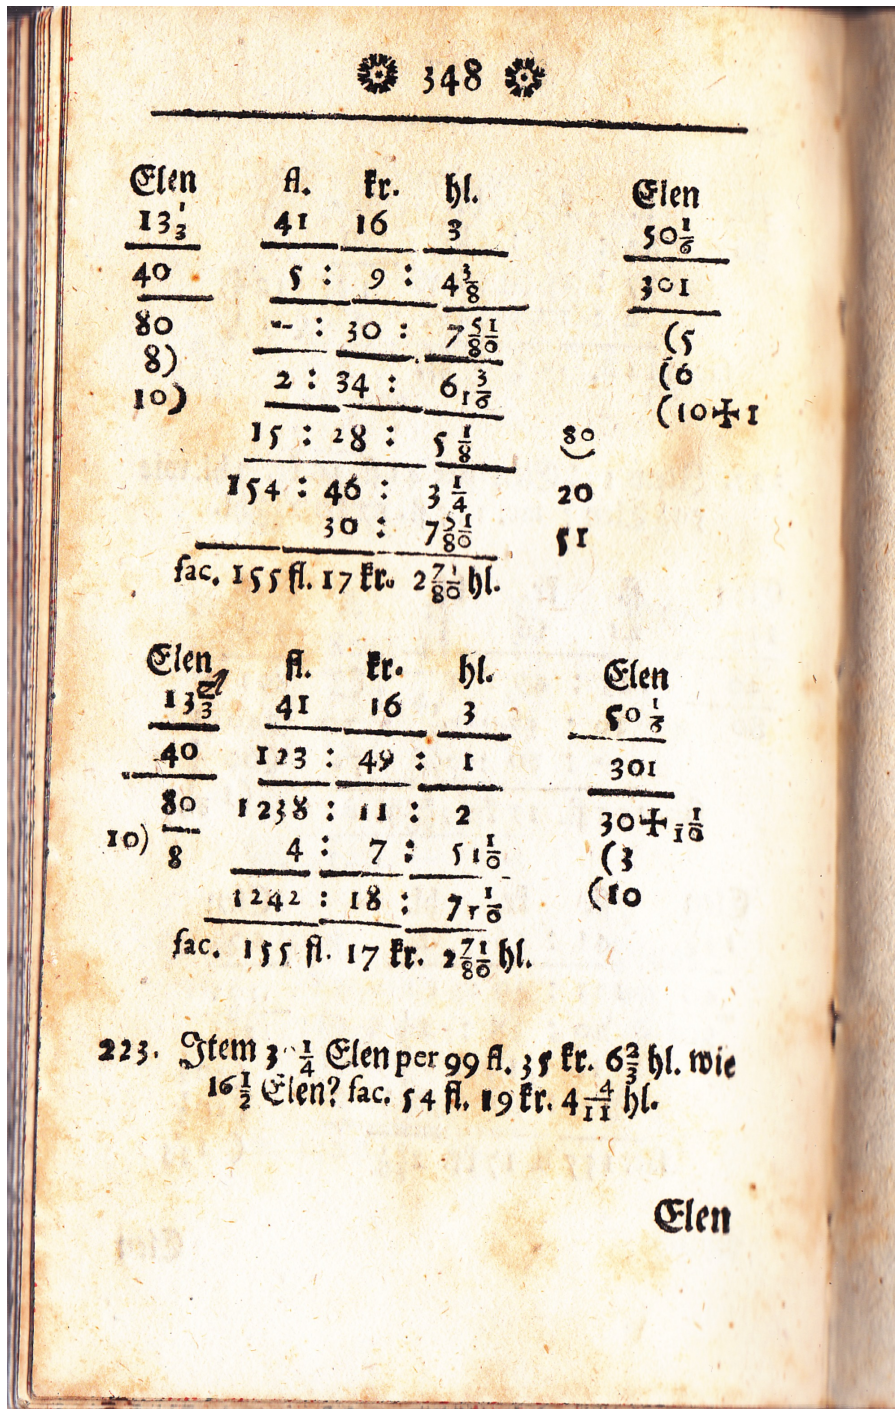 348
Elen fl. kr. hl. Elen
13 1/3 41 16 3 50 1/6
40 5 : 9 : 4 3/8 301
80 -- : 30 : 7 51/80 (5
8) (6
10) 2 : 34 : 6 3/16 (10✠1
15 : 28 : 5 1/8 80
154 : 46 : 3 1/4 20
30 : 7 51/80 51
fac. 155 fl. 17 kr. 2 71/80 hl.
Elen fl. kr. hl. Elen
13 /3 41 16 3 50 1/6
40 123 : 49 : 1 301
80 1238 : 11 : 2 30✠ 1/10
10) 8 4 : 7 : 5 1/10 (3
1242 : 18 : 7 1/10 (10
fac. 155 fl. 17 kr. 2 71/80 hl.
223. Item 3 1/4 Elen per 99 fl. 35 kr. 6 2/3 hl. wie
16 1/2 Elen? fac. 54 fl. 19 kr. 4 4/11 hl.
Elen